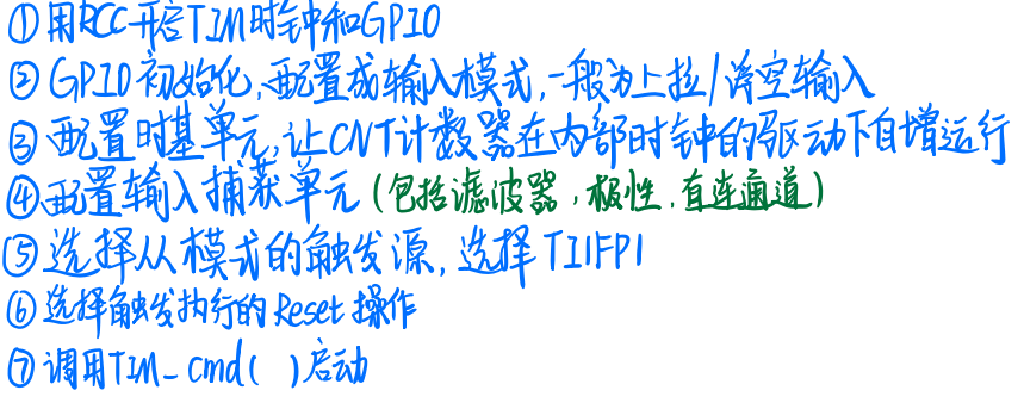 ①用RCC开启TIM时钟和GPIO
②GPIO初始化,配置成输入模式,一般为上拉/浮空输入
③配置时基单元,让CNT计数器在内部时钟的驱动下自增运行
④配置输入捕获单元(包括滤波器,极性.直连通道)
⑤选择从模式的触发源,选择TI1FP1
⑥选择触发执行的Reset操作
⑦调用TIM_cmd( )启动